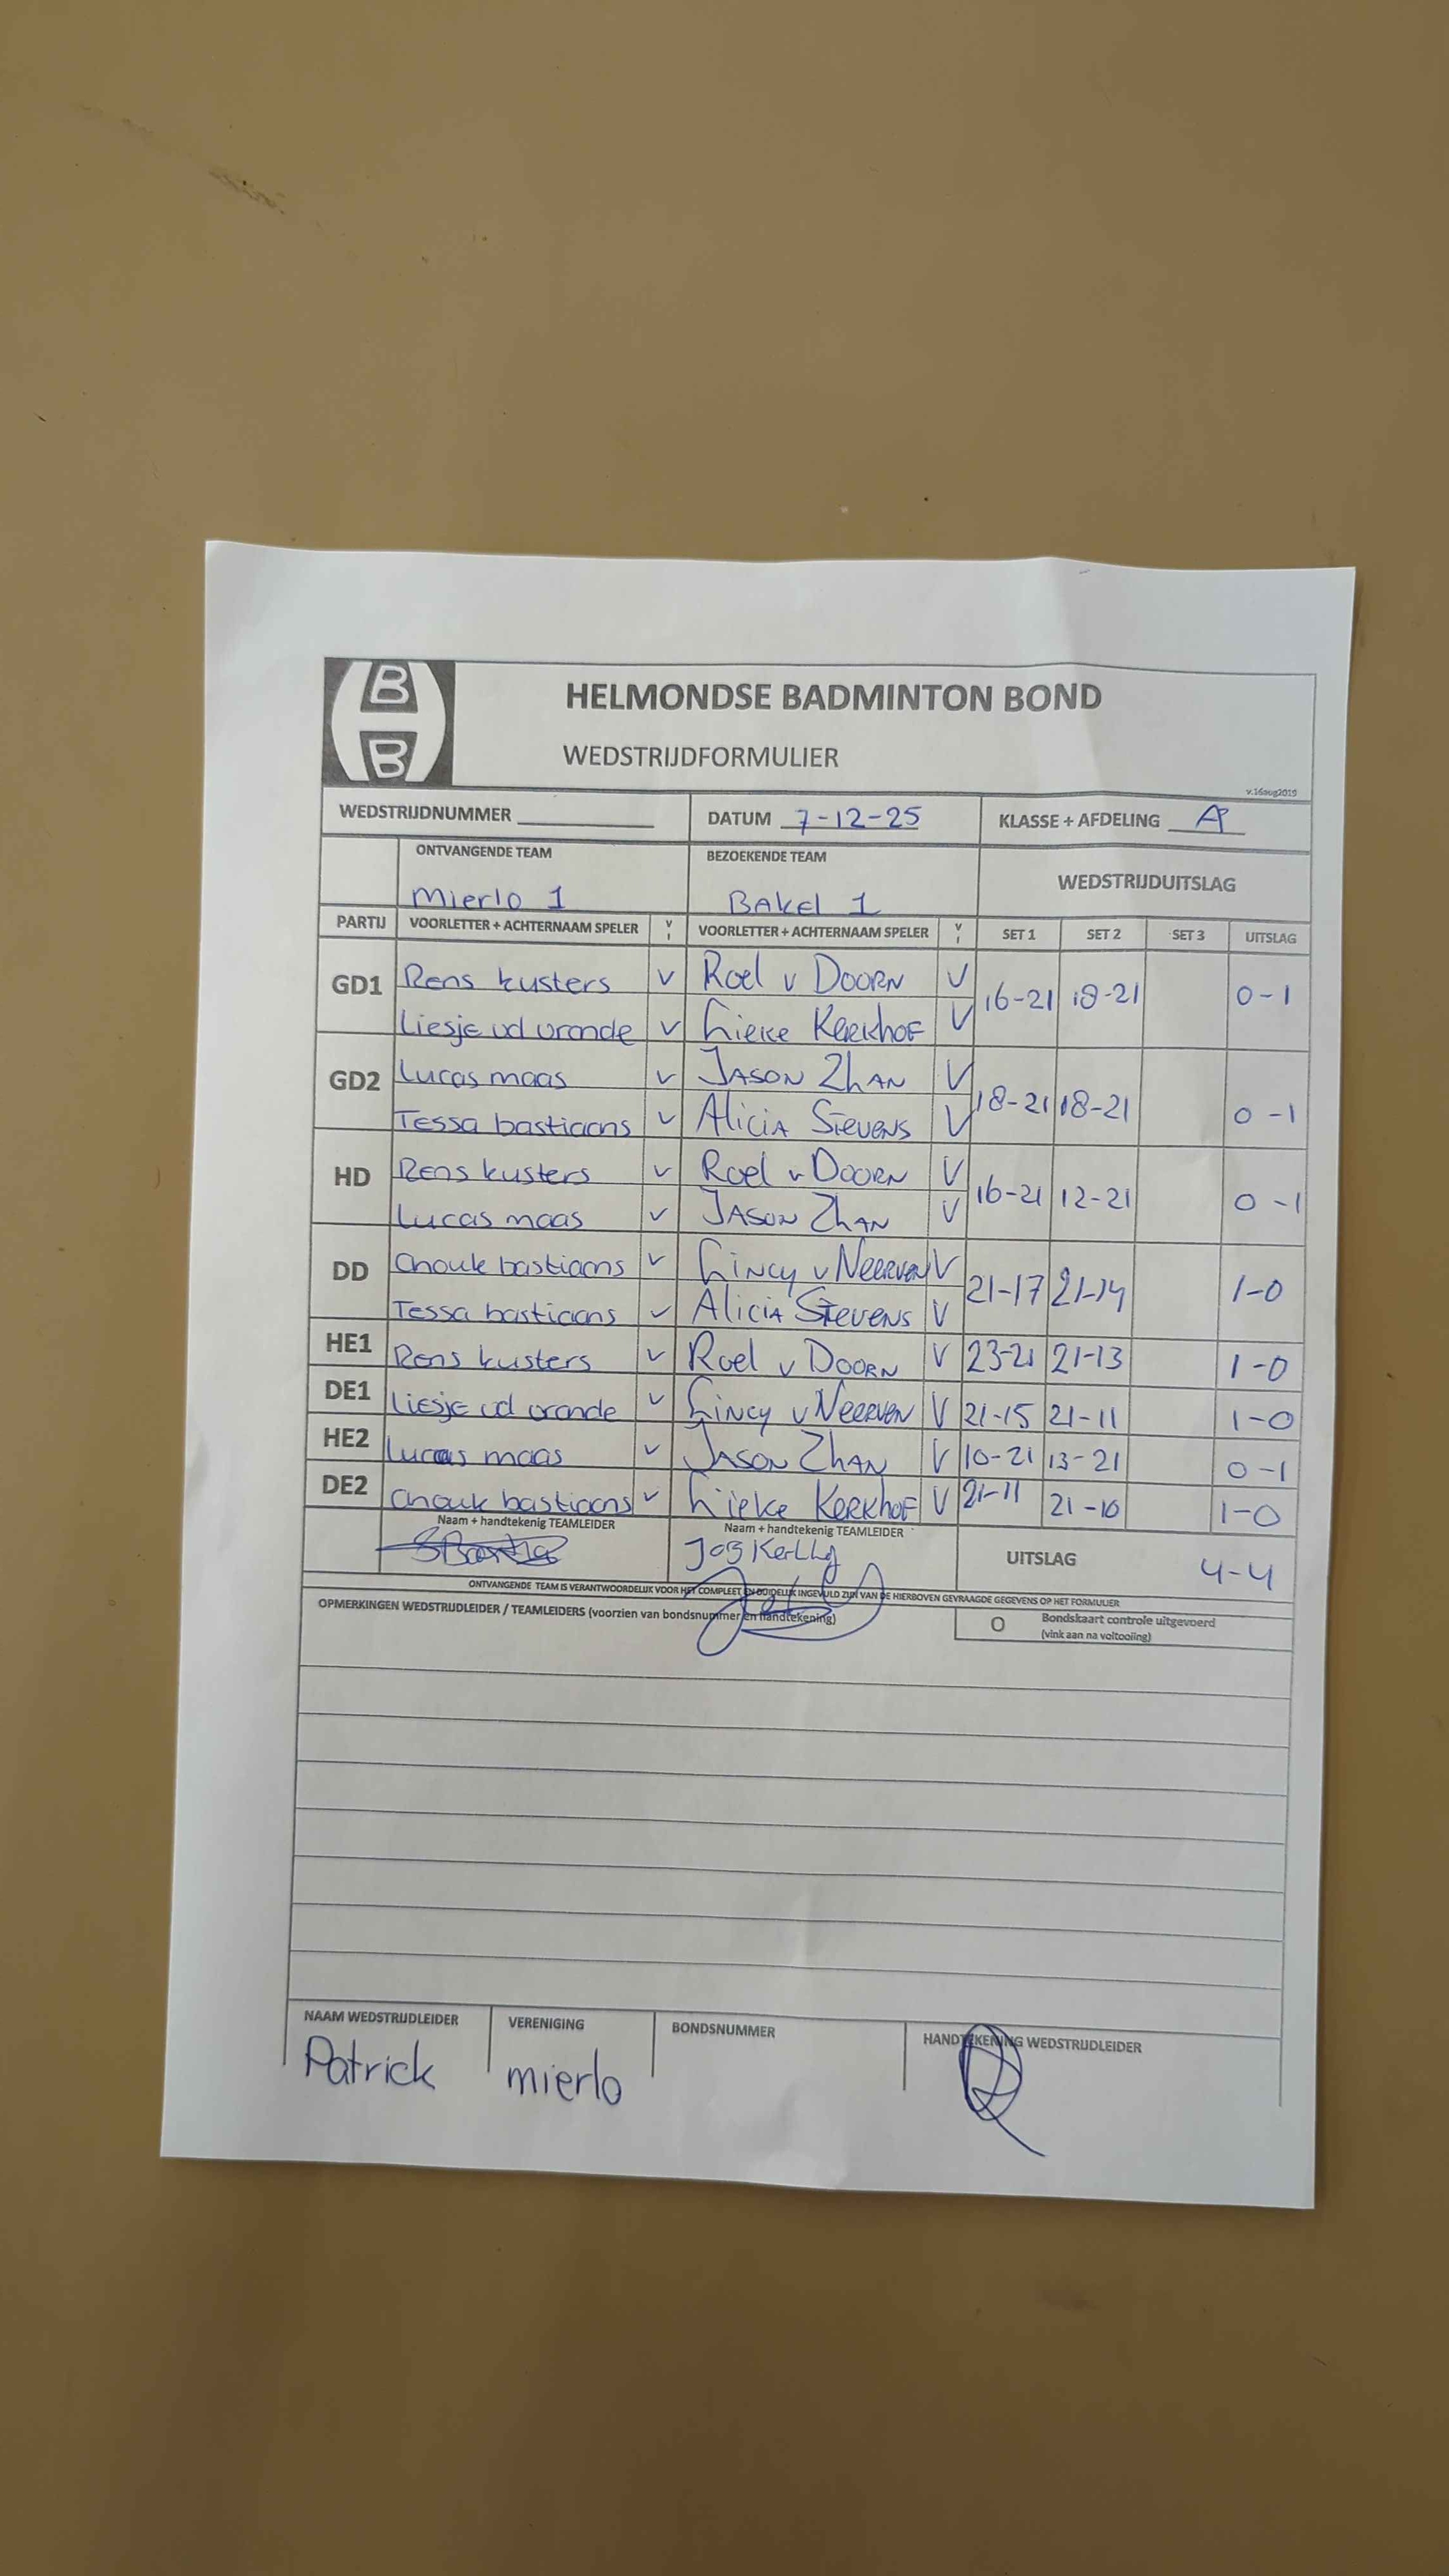 B
B
HELMONDSE BADMINTON BOND
WEDSTRIJDFORMULIER
v.16aug2019
WEDSTRIJDNUMMER DATUM 7-12-25 KLASSE + AFDELING A
ONTVANGENDE TEAM BEZOEKENDE TEAM WEDSTRIJDUITSLAG
Mierlo 1 BAKel 1
PARTIJ VOORLETTER + ACHTERNAAM SPELER V I VOORLETTER + ACHTERNAAM SPELER V I SET 1 SET 2 SET 3 UITSLAG
GD1 Rens kusters v Roel v Doorn V 16-21 18-21 0-1
Liesje vd vrande v Lieke Kerkhof V
GD2 Lucas maas v Jason Zhan V 18-21 18-21 0-1
Tessa bastiaans v Alicia Stevens V
HD Rens kusters v Roel v Doorn V 16-21 12-21 0-1
Lucas maas v Jason Zhan V
DD Chouk bastiaans v Lincy v Neerven V 21-17 21-14 1-0
Tessa bastiaans v Alicia Stevens V
HE1 Rens kusters v Roel v Doorn V 23-21 21-13 1-0
DE1 Liesje vd vrande v Lincy v Neerven V 21-15 21-11 1-0
HE2 Lucas maas v Jason Zhan V 10-21 13-21 0-1
DE2 Chouk bastiaans v Lieke Kerkhof V 21-11 21-10 1-0
Naam + handtekenig TEAMLEIDER Naam + handtekenig TEAMLEIDER UITSLAG 4-4
ONTVANGENDE TEAM IS VERANTWOORDELIJK VOOR HET COMPLEET EN DUIDELIJK INGEVULD ZIJN VAN DE HIERBOVEN GEVRAAGDE GEGEVENS OP HET FORMULIER
OPMERKINGEN WEDSTRIJDLEIDER / TEAMLEIDERS (voorzien van bondsnummer en handtekening) O Bondskaart controle uitgevoerd
(vink aan na voltooiing)
NAAM WEDSTRIJDLEIDER VERENIGING BONDSNUMMER HANDTEKENING WEDSTRIJDLEIDER
Patrick mierlo